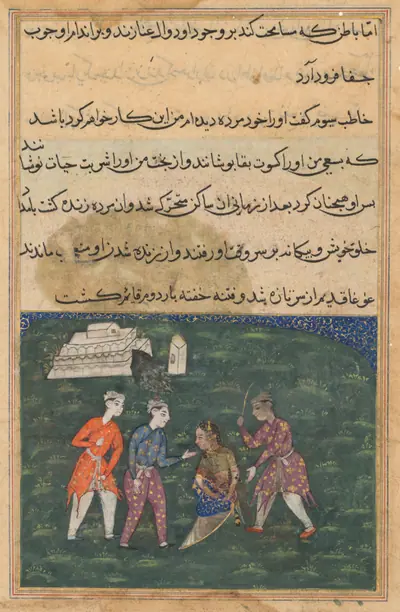 اما باطن که مسامحت کند بر وجود او روال عنا زند و بر اندام او چوب
جفا فرود آرد
خاطب سوم گفت او را خود مرده دیده‌ام من این کار خواهم کرد باشد
که بسعی من او را کسوت بقا بپوشانند و از بخت من او را شربت حیات نوشانند
پس او همچنان کرد بعد از زمانی آن ساکن متحرک شد و آن مرده زنده گشت
خلق خویش و بیگانه بر سر وقت او رفتند و از زنده شدن او متعجب ماندند
غوغا قدیم از سر تازه شد و فتنه خفته بار دوم قایم گشت